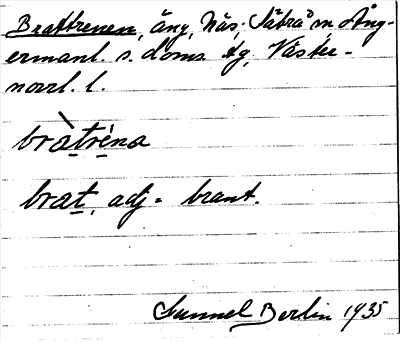 Brattrenen, äng, Näs, Säbrå sn, Ång-
ermanl. s. doms. tg, Väster-
norrl. l.
bràtréna
brat, adj = brant.
Sunnel Berlin 1935